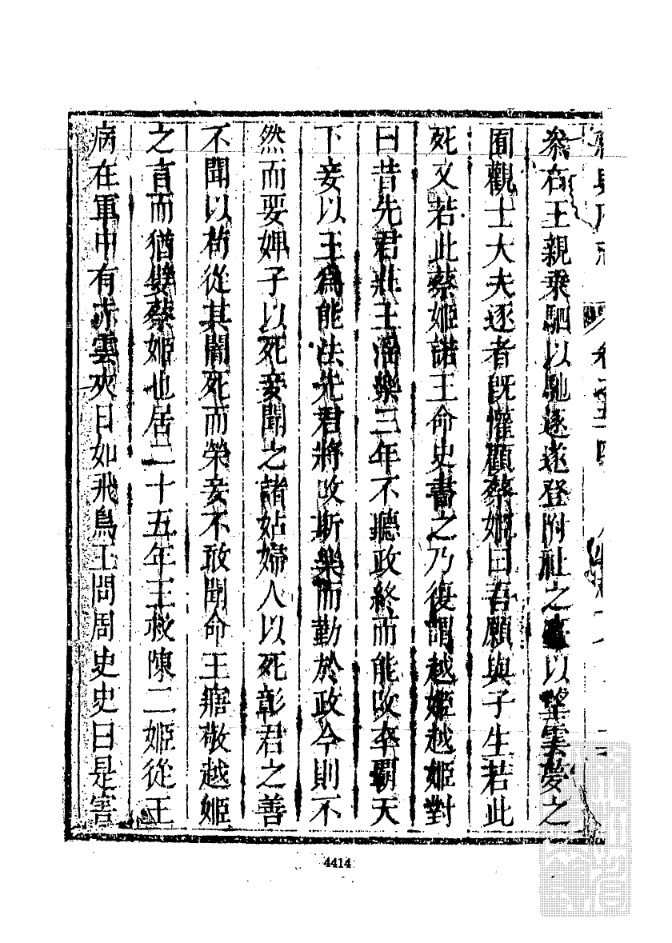 參右王親乘駟以馳逐遂登附社之臺以望雲夢之
囿觀士大夫逐者既懽顧蔡姬曰吾願與子生若此
死又若此蔡姬諾王命史書之乃復謂越姬越姬對
曰昔先君莊王淫樂三年不聽政終而能改卒霸天
下妾以王為能法先君將改斯樂而勤於政今則不
然而要婢子以死妾聞之諸姑婦人以死彰君之善
不聞以苟從其闇死而榮妾不敢聞命王寤敬越姬
之言而猶嬖蔡姬也居二十五年王救陳二姬從王
病在軍中有赤雲夾日如飛鳥王問周史史曰是害
4414